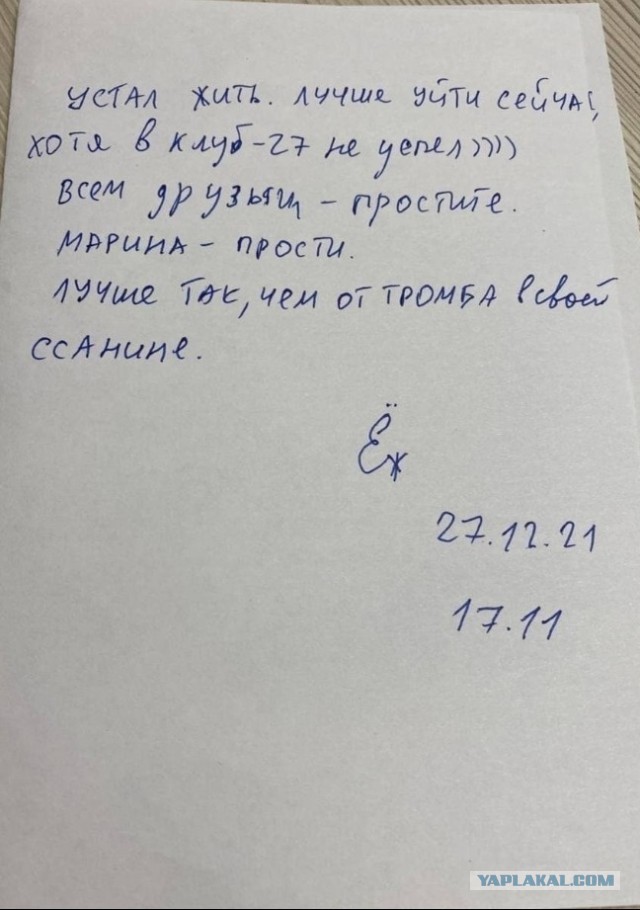 УСТАЛ ЖИТЬ. ЛУЧШЕ УЙТИ СЕЙЧАС,
ХОТЯ В КЛУБ-27 НЕ УСПЕЛ))))
ВСЕМ ДРУЗЬЯМ - ПРОСТИТЕ.
МАРИНА - ПРОСТИ.
ЛУЧШЕ ТАК, ЧЕМ ОТ ТРОМБА В СВОЕЙ
ССАНИНЕ.
Ёж
27.12.21
17.11
YAPLAKAL.COM